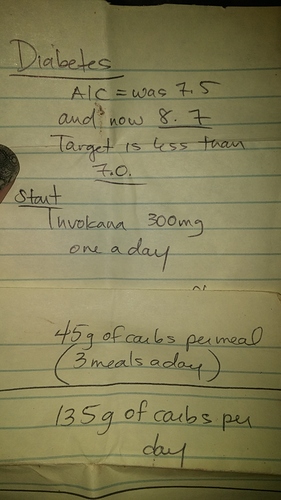 Diabetes
A1C = was 7.5
and now 8.7
Target is less than
7.0.
Start
Invokana 300mg
one a day
45g of carbs per meal
(3 meals a day)
135g of carbs per
day